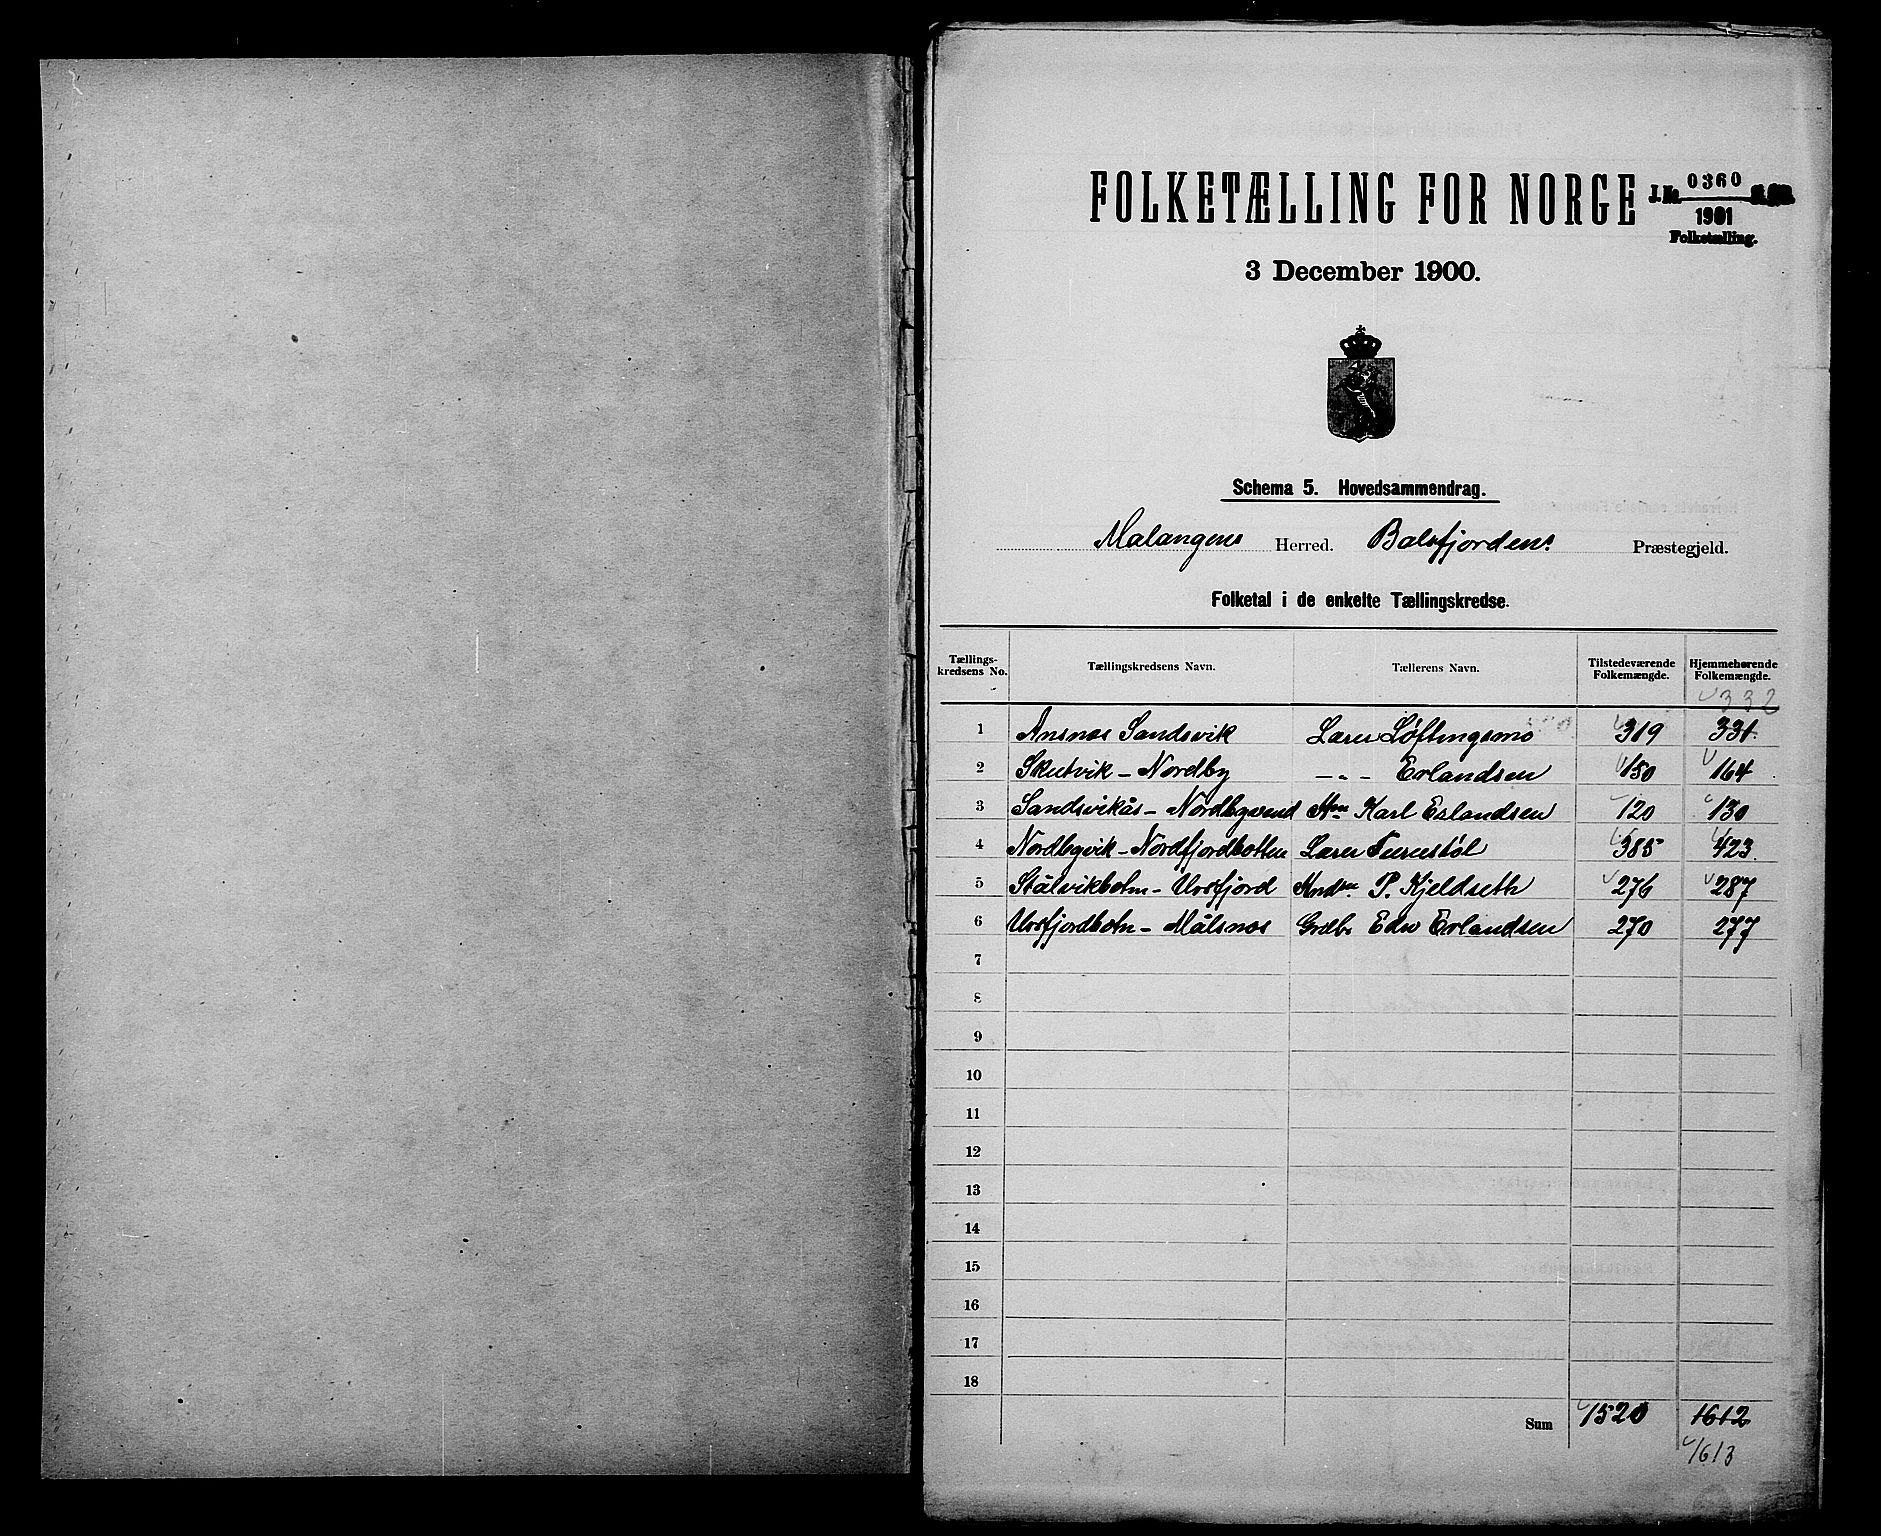 FOLKETÆLLING FOR NORGE
J. No. 0360
1901
Folketælling.
3 December 1900.
Schema 5. Hovedsammendrag.
Malangens Herred. Balsfjordens Præstegjeld.
Folketal i de enkelte Tællingskredse.
Tællings-kredsens No. Tællingskredsens Navn. Tællerens Navn. Tilstedeværende Folkemængde. Hjemmehørende Folkemængde.
332
1 Ansnæs Sandsvik Lærer Løftingsmo 319 331
2 Skutvik - Nordby - " - Erlandsen 150 164
3 Sandsvikås - Nordbyvend Karl Erlandsen 120 130
4 Nordbyvik - Nordfjordbotten Lærer Furustøl 385 423
5 Stålvikbotn - Ursfjord P. Kjeldseth 276 287
6 Ursfjordbotn - Målsnæs Grdbr Edv Erlandsen 270 277
7
8
9
10
11
12
13
14
15
16
17
18
Sum 1520 1612
1613